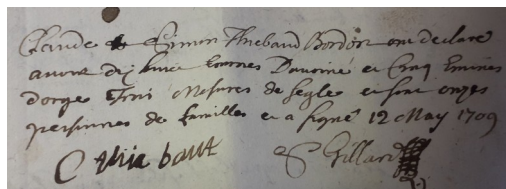 Claude & Simon Thiebaud Bordot ont declaré
avoir dix huit Cournes Davoine et Cinq Emines
dorge Trois Mesures de Segle et sont onzes
personnes de familles et a signé 12 May 1709
C thiebaut Gillard